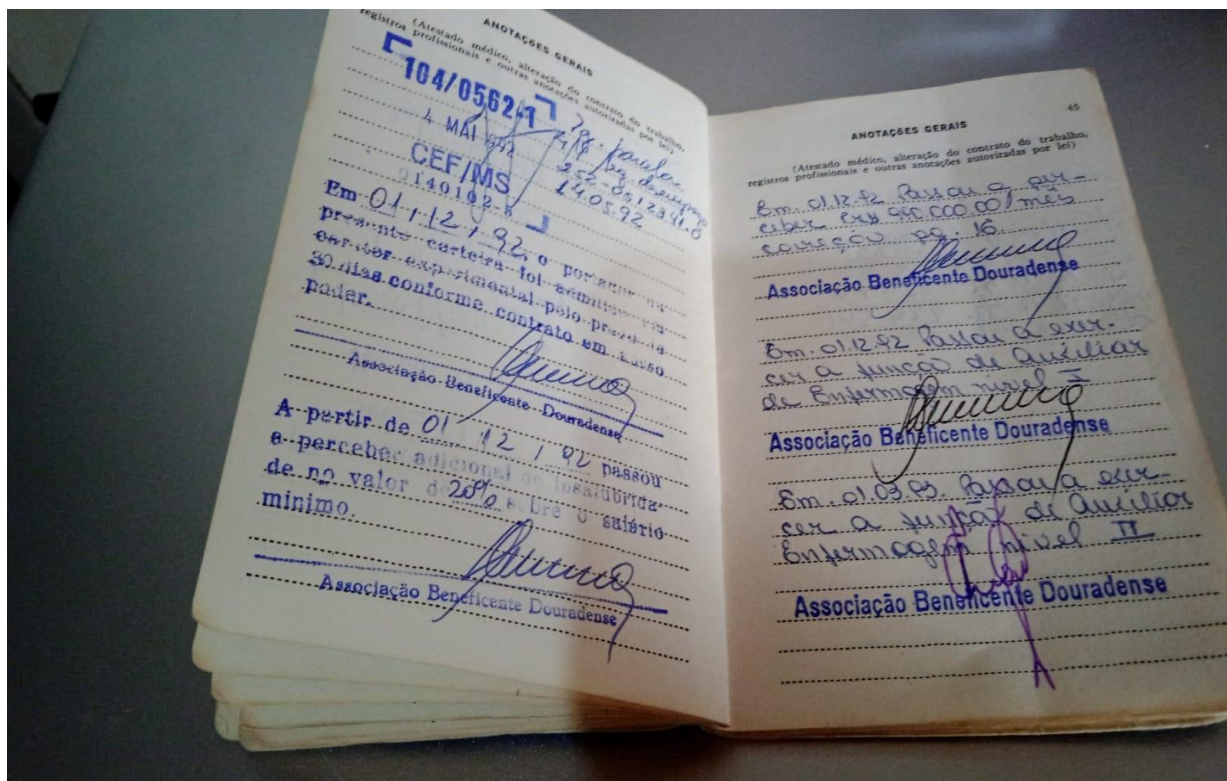 ANOTAÇÕES GERAIS
(Atestado médico, alteração do contrato do trabalho,
registros profissionais e outras anotações autorizadas por lei)
104/0562-1
4 MAI 1992
CEF/MS
14.05.92
Em 01/12/92 o portador da
presente carteira foi admitido em
carater experimental pelo prazo de
30 dias conforme contrato em nosso
poder.
Associação Beneficente Douradense
A partir de 01/12/92 passou
a perceber adicional de insalubrida-
de no valor de 20% sobre o salário
mínimo.
Associação Beneficente Douradense
45
ANOTAÇÕES GERAIS
(Atestado médico, alteração do contrato do trabalho,
registros profissionais e outras anotações autorizadas por lei)
Em 01.12.92 Passou a per-
ceber 000.00/mês
pg. 16
Associação Beneficente Douradense
Em 01.12.92 Passou a exer-
cer a função de Auxiliar
de Enfermagem nivel I
Associação Beneficente Douradense
Em 01.03.93. Passou a exer-
cer a função de Auxiliar
Enfermagem nivel II
Associação Beneficente Douradense